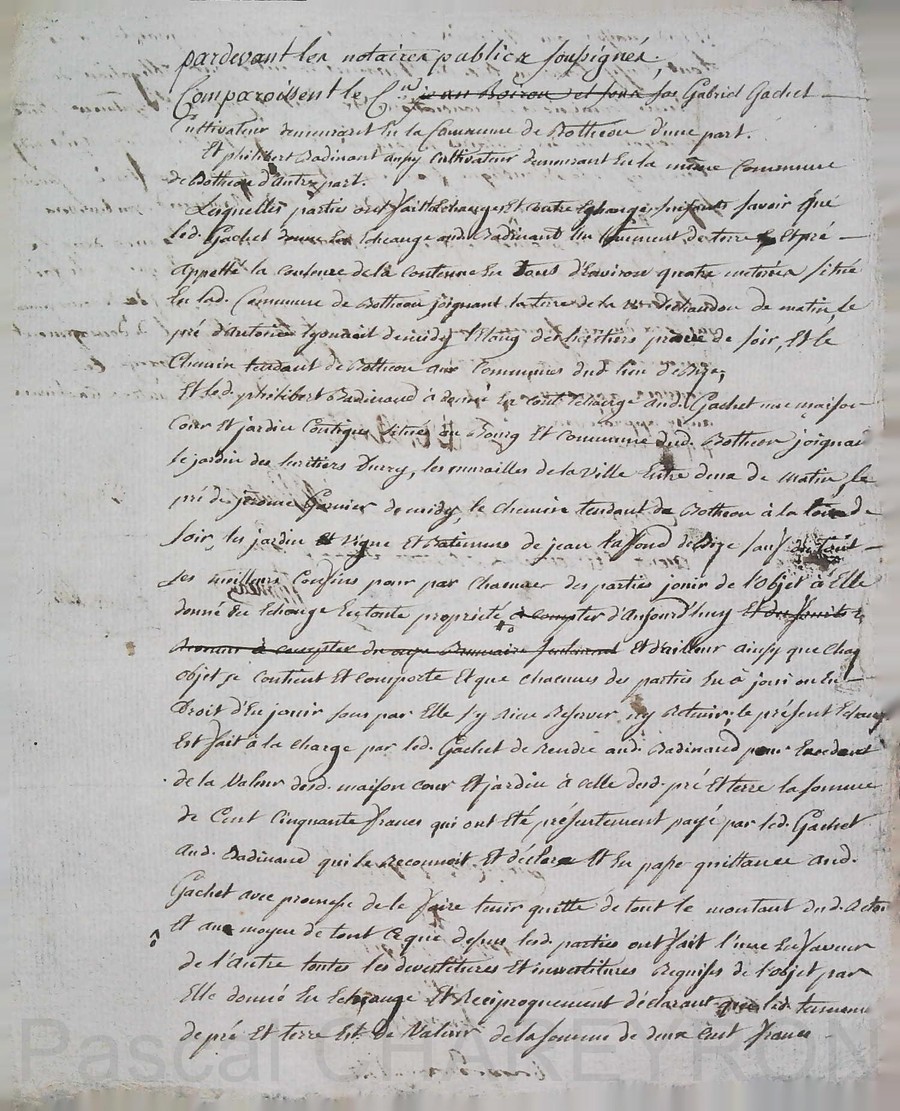 pardevant les notaires publics soussignés,
Comparoissent le Cen jean Boiron et sous jas Gabriel Gachet
Cultivateur demeurant en la Commune de Botheon d'une part.
Et philibert Badinant aussy Cultivateur demeurant En la même Commune
de Botheon d'Autre part.
Lesquelles parties ont fait Echange Et Contre Echange suivants savoir que
led. Gachet donne En Echange aud. Badinant Un tènement de terre Et pré
Appellé la Couleure de la Contenue En tous d'Environ quatre meterées située
En lad. Commune de Botheon joignant la terre de la ve dechandon de matin, le
pré d'Antoine lyonnait de midy l'Etang des héritiers de soir, Et le
Chemin tendant de Botheon aux Communes dud. lieu d'Bize,
Et led. philibert Badinand à donné En contr'Echange aud. Gachet une maison
Cour Et jardin Contigus situés au Bourg Et Commune dud. Botheon joignai
le jardin des héritiers Duvry, les murailles de la Ville Entre deux de Matin, le
pré de jerome Garnier de midy, le chemin tendant de Botheon à la de
soir, les jardin Et Vigne Et Batimens de jean lafond de bize sauf de tout
ses meilleurs Confins pour par chacune des parties jouir de l'objet à Elle
donné En Echange En toute propriété à compter d'Aujourd'huy Et du
à compter du onze Et d'ailleur ainsy que chaq
objet se contient Et comporte Et que chacunes des parties En à joui ou En
Droit d'En jouir sans par Elle s'y rien Reserver n'y Retenir, le présent Echange
Est fait à la charge par led. Gachet de Rendre aud. Badinand pour Excedant
de la Valeur desd. maison cour Et jardin à celle desd. pré Et terre la somme
de Cent Cinquante francs qui ont été présentement payé par led. Gachet
Aud. Badinand qui le Reconnoit Et déclare Et En passe quittance aud.
Gachet avec promesse de le faire tenir quitte de tout le montant dud. Acte
Et aux moyen de tout ce que dessus lesd. parties ont fait l'une En faveur
de l'Autre toutes les devestitures Et investitures Requises de l'objet par
Elle donné En Echange Et Réciproquement déclarant que led. tenement
de pré Et terre Est de Valeur de la somme de deux cent francs
Pascal CHAREYRON